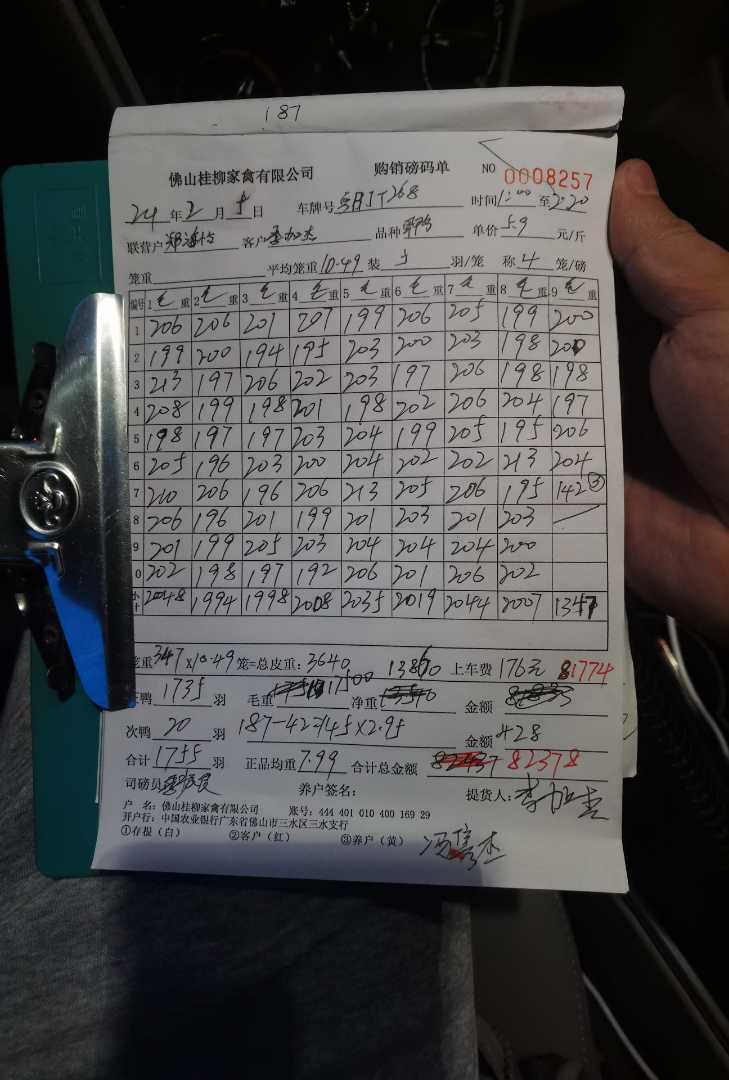 187
佛山桂柳家禽有限公司 购销磅码单 NO 0008257
24 年 2 月 5 日 车牌号 JT268 时间 1:00 至 2:20
联营户 客户 李加杰 品种 单价 5.9 元/斤
笼重 平均笼重 10.49 装 5 羽/笼 称 4 笼/磅
编号 1 毛 重 2 毛 重 3 毛 重 4 毛 重 5 毛 重 6 毛 重 7 毛 重 8 毛 重 9 毛 重
1 206 206 201 207 199 206 205 199 200
2 199 200 194 195 203 200 203 198 200
3 213 197 206 202 203 197 206 198 198
4 208 199 198 201 198 202 206 204 197
5 198 197 197 203 204 199 205 195 206
6 205 196 203 200 204 202 202 213 204
7 210 206 196 206 213 205 206 195 142 ③
8 206 196 201 199 201 203 201 203
9 201 199 205 203 204 204 204 200
0 202 198 197 192 206 201 206 202
小计 2048 1994 1998 2008 2035 2019 2044 2007 1347
笼重 347×10.49 笼=总皮重: 3640 13860 上车费 176元 81774
鸭 1735 羽 毛重 17500 净重 金额
次鸭 20 羽 187-42=145×2.95 金额 428
合计 1755 羽 正品均重 7.99 合计总金额 82378
司磅员 养户签名: 提货人: 李加杰
户 名: 佛山桂柳家禽有限公司 账号: 444 401 010 400 169 29
开户行: 中国农业银行广东省佛山市三水区三水支行
①存根(白) ②客户(红) ③养户(黄)